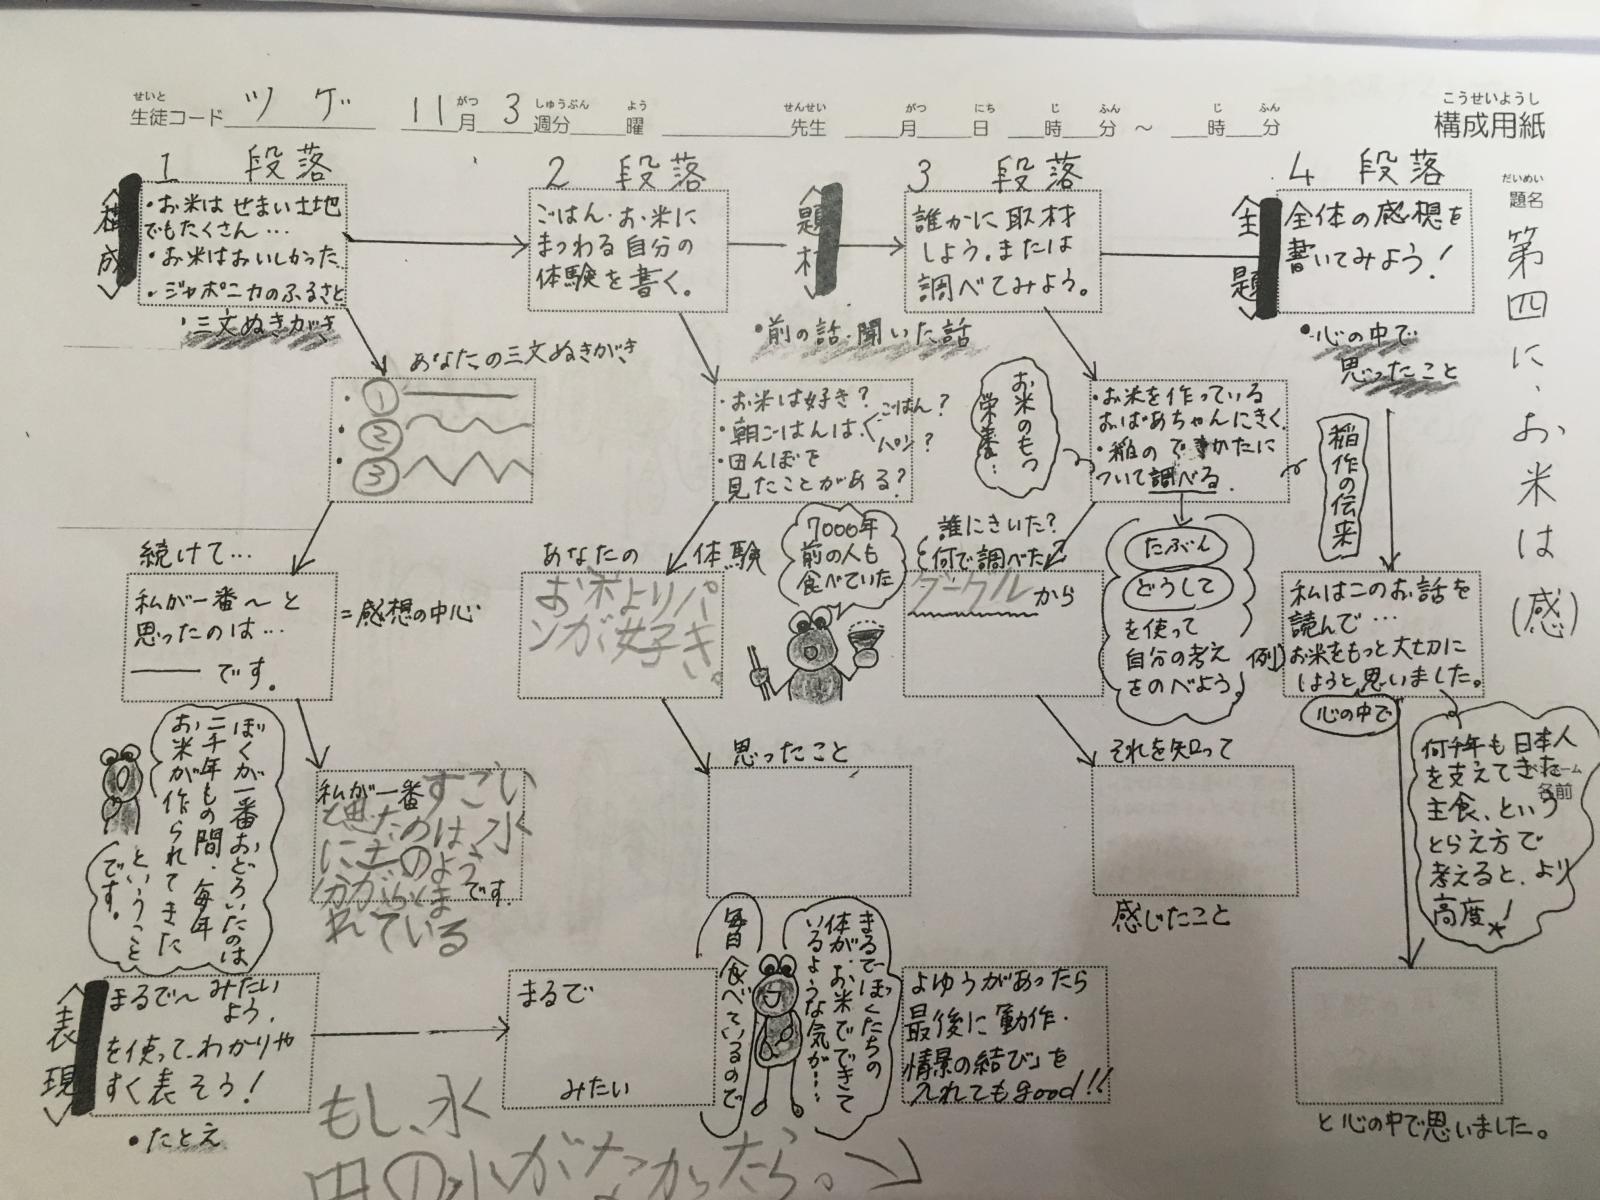 せいと
生徒コード ツゲ 11月 3週分 曜 先生 月 日 時 分 ～ 時 分
がつ しゅうぶん よう せんせい がつ にち じ ふん じ ふん
こうせいようし
構成用紙
だいめい
題名
第四に、お米は(感)
1 段落
構成
・お米は せまい土地
でもたくさん…
・お米はおいしかった
・ジャポニカのふるさと
・三文ぬきがき
あなたの三文ぬきがき
・①
・②
・③
続けて…
私が一番～と
思ったのは…
です。
=感想の中心
ぼくが一番おどろいたのは
二千年もの間、毎年
お米が作られてきた
ということ
です。
私が一番すごい
と思ったのは、水
に土のよう
分がふくま
れている
です。
2 段落
ごはん・お米に
まつわる自分の
体験を書く。
・お米は好き?
・朝ごはんは、
ごはん?
パン?
・田んぼを
見たことがある?
あなたの 体験
お米よりパ
ンが好き。
7000年
前の人も
食べていた
思ったこと
題材
3 段落
誰かに取材
しよう。または
調べてみよう。
・前の話・聞いた話
お米のもつ
栄養…
・お米を作っている
おばあちゃんにきく。
・稲のでき かたに
ついて調べる。
誰にきいた?
と何で調べた?
グーグルから
たぶん
どうして
を使って
自分の考え
をのべよう。
それを知って
感じたこと
主題
4 段落
全体の感想を
書いてみよう!
・心の中で
思ったこと
稲作の伝来
例)
私はこのお話を
読んで…
お米をもっと大切に
しようと思いました。
心の中で
何千年も日本人
を支えてきた
主食、という
とらえ方で
考えると、より
高度!
名前
と心の中で思いました。
表現
まるで～みたい
よう、
を使って、わかりや
すく表そう!
・たとえ
まるで
みたい
毎日食べているので
まるでぼくたちの
体が、お米でできて
いるような気が…
よゆうがあったら
最後に「動作・
情景の結び」を
入れてもgood!!
もし、水
田の水がなかったら。